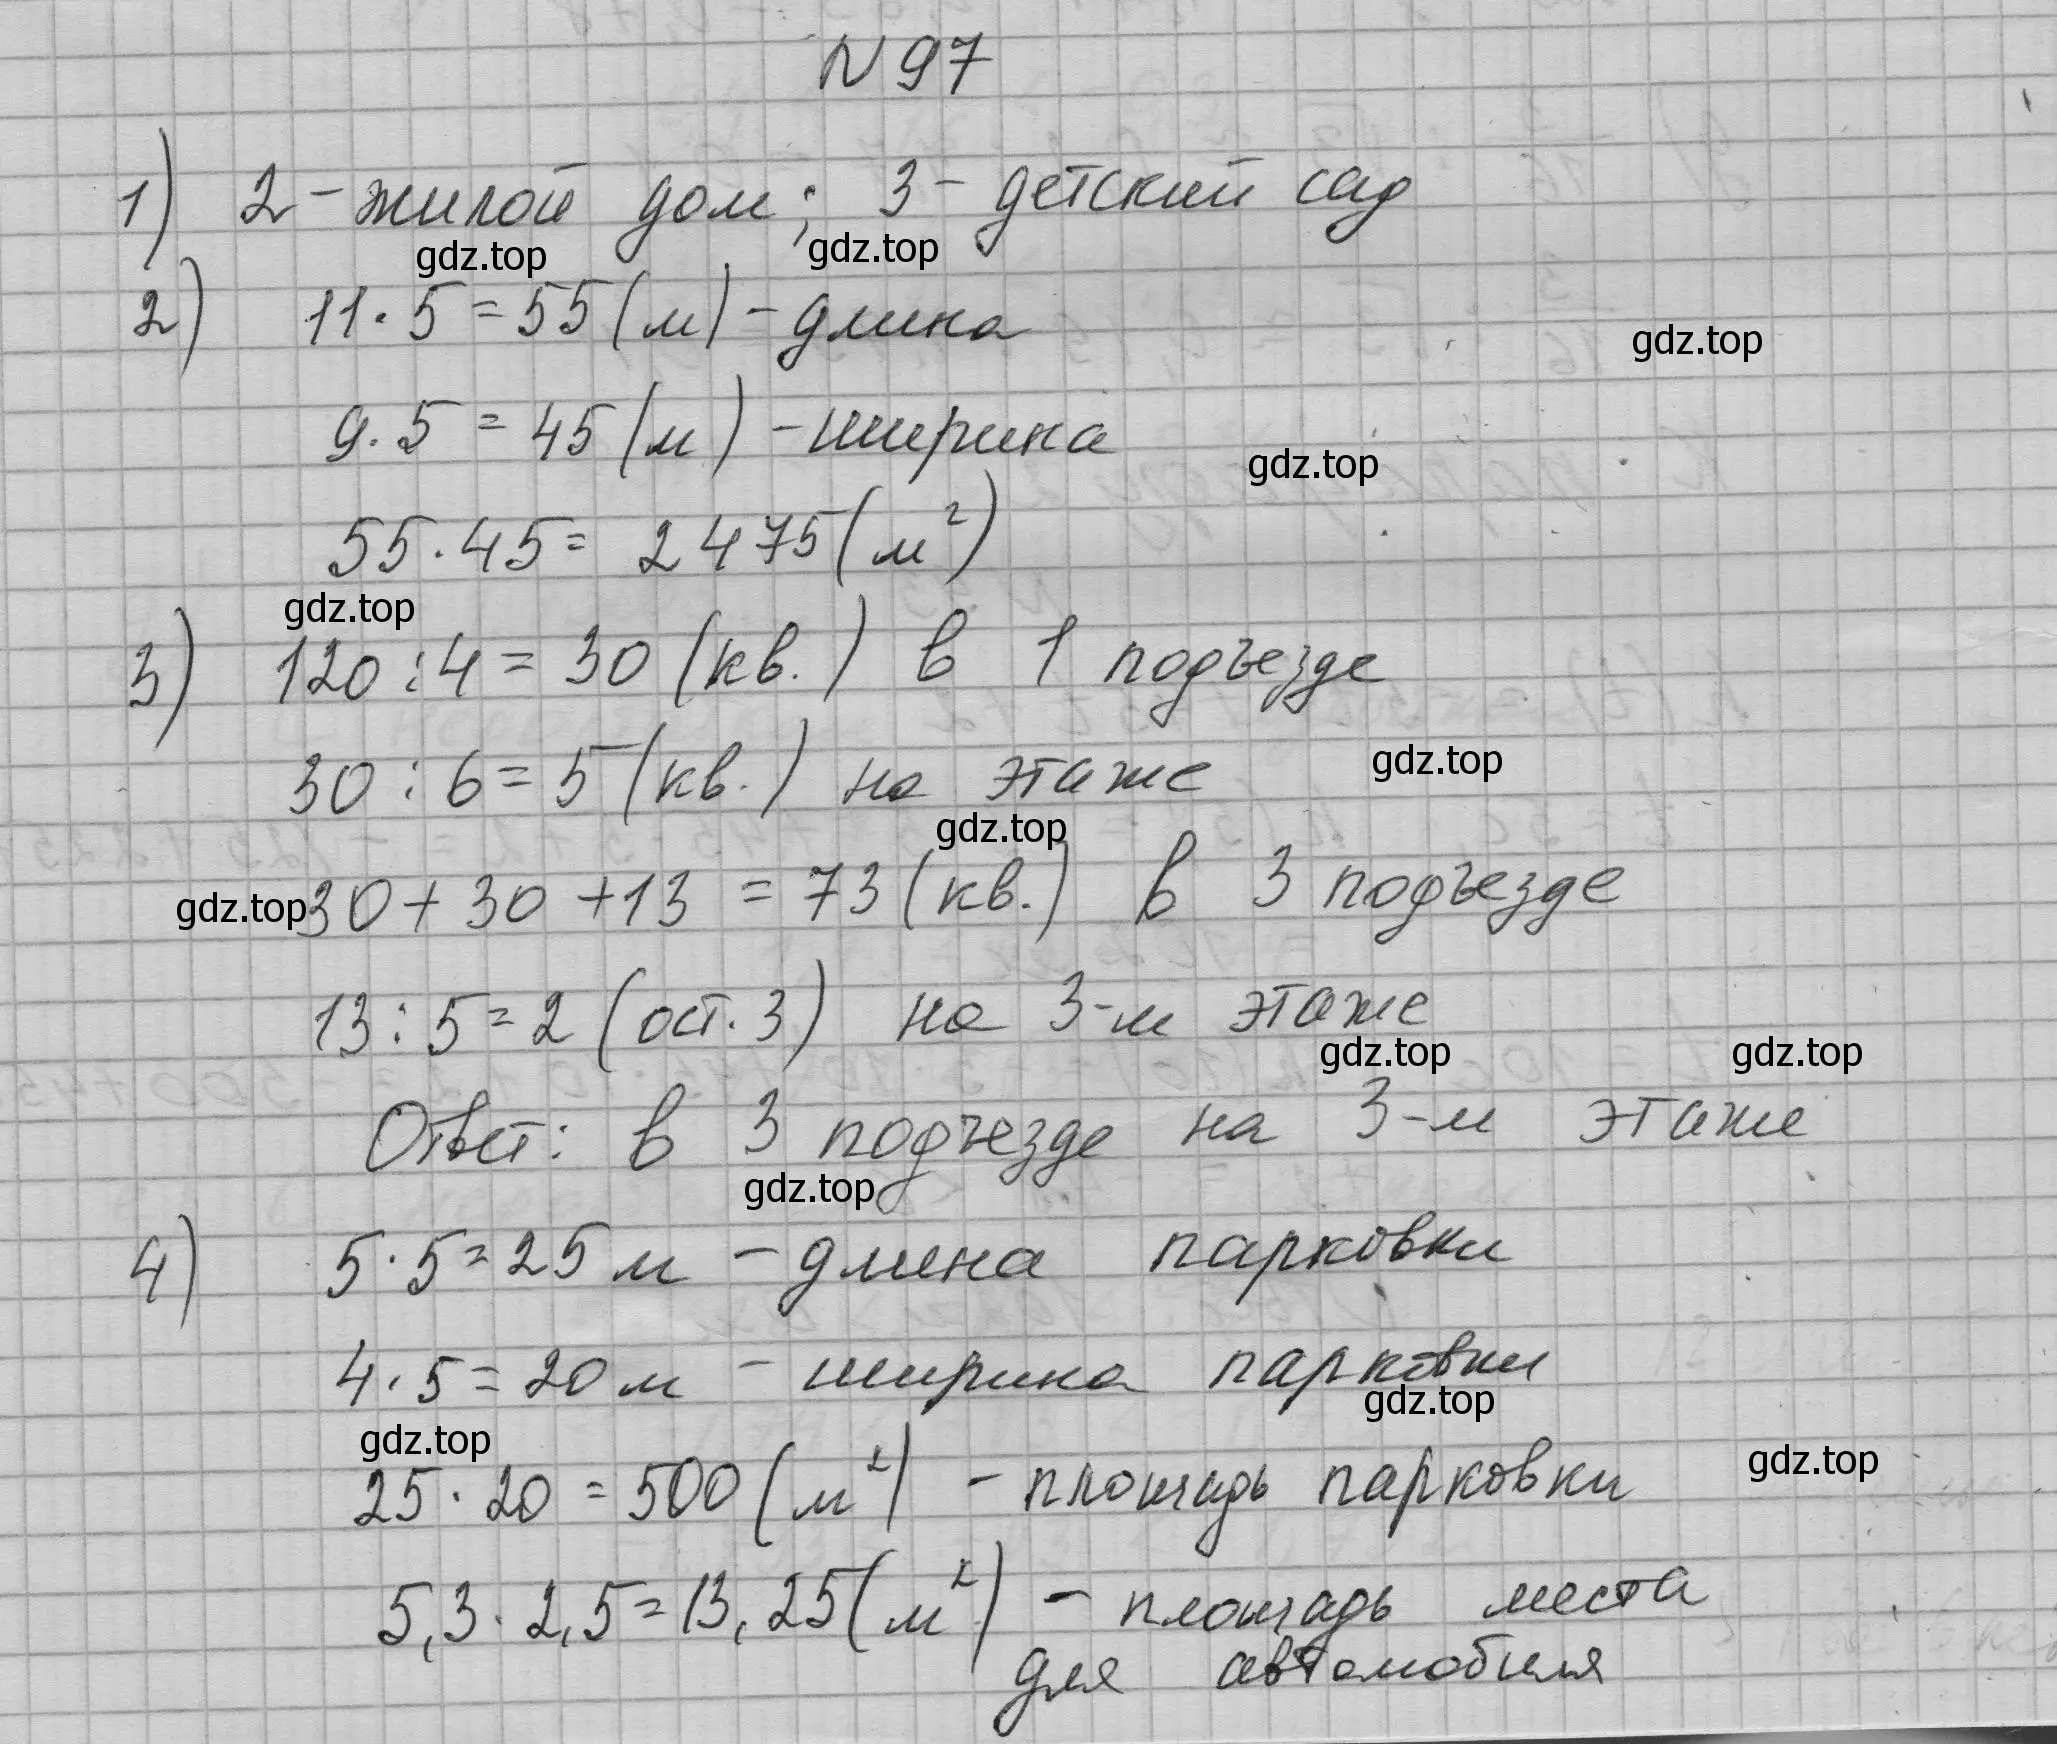 N 97
1) 2 - жилой дом; 3 - детский сад
gdz.top gdz.top
2) 11 · 5 = 55 (м) - длина
gdz.top
9 · 5 = 45 (м) - ширина
gdz.top
55 · 45 = 2475 (м²)
gdz.top
3) 120 : 4 = 30 (кв.) в 1 подъезде
30 : 6 = 5 (кв.) на этаже
gdz.top
gdz.top
gdz.top 30 + 30 + 13 = 73 (кв.) в 3 подъезде
13 : 5 = 2 (ост. 3) на 3-м этаже
gdz.top gdz.top
Ответ: в 3 подъезде на 3-м этаже
gdz.top
4) 5 · 5 = 25 м - длина парковки
4 · 5 = 20 м - ширина парковки
gdz.top
gdz.top
25 · 20 = 500 (м²) - площадь парковки
gdz.top
5,3 · 2,5 = 13,25 (м²) - площадь места
для автомобиля